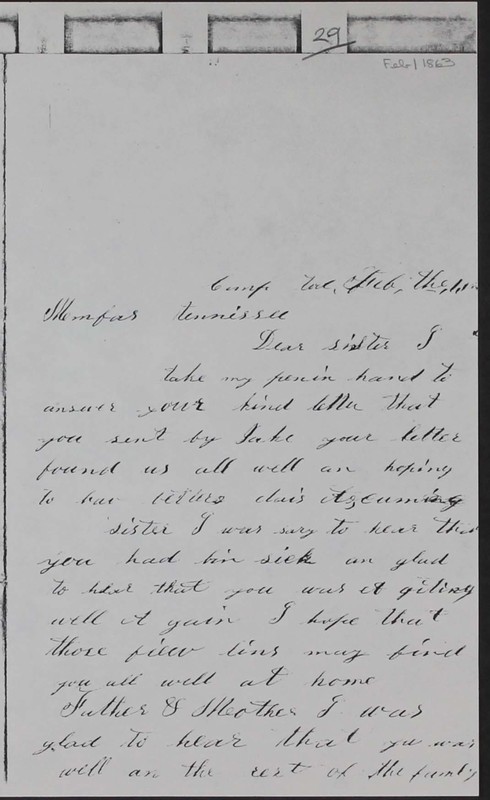 29
Feb/1863
Camp Feb, the, 1
Memfas tennissee
Dear sister I
take my penin hand to
answer your kind letter that
you sent by Jake your letter
found us all well an hoping
to hav betters dais
sister I was sary to hear that
you had bin sick an glad
to hear that you was a giting
well a gain I hope that
those fiew lins may find
you all well at home
Father & Mother I was
glad to hear that you was
well an the rest of the family